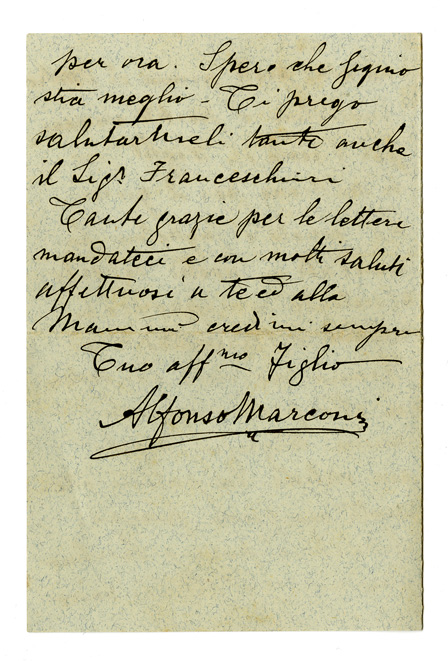 per ora. Spero che Gigino
stia meglio - Ti prego
salutarmeli tanto anche
il Sigr. Franceschini
Tante grazie per le lettere
mandateci e con molti saluti
affettuosi a te ed alla
Mammà credimi sempre
Tuo affmo Figlio
Alfonso Marconi